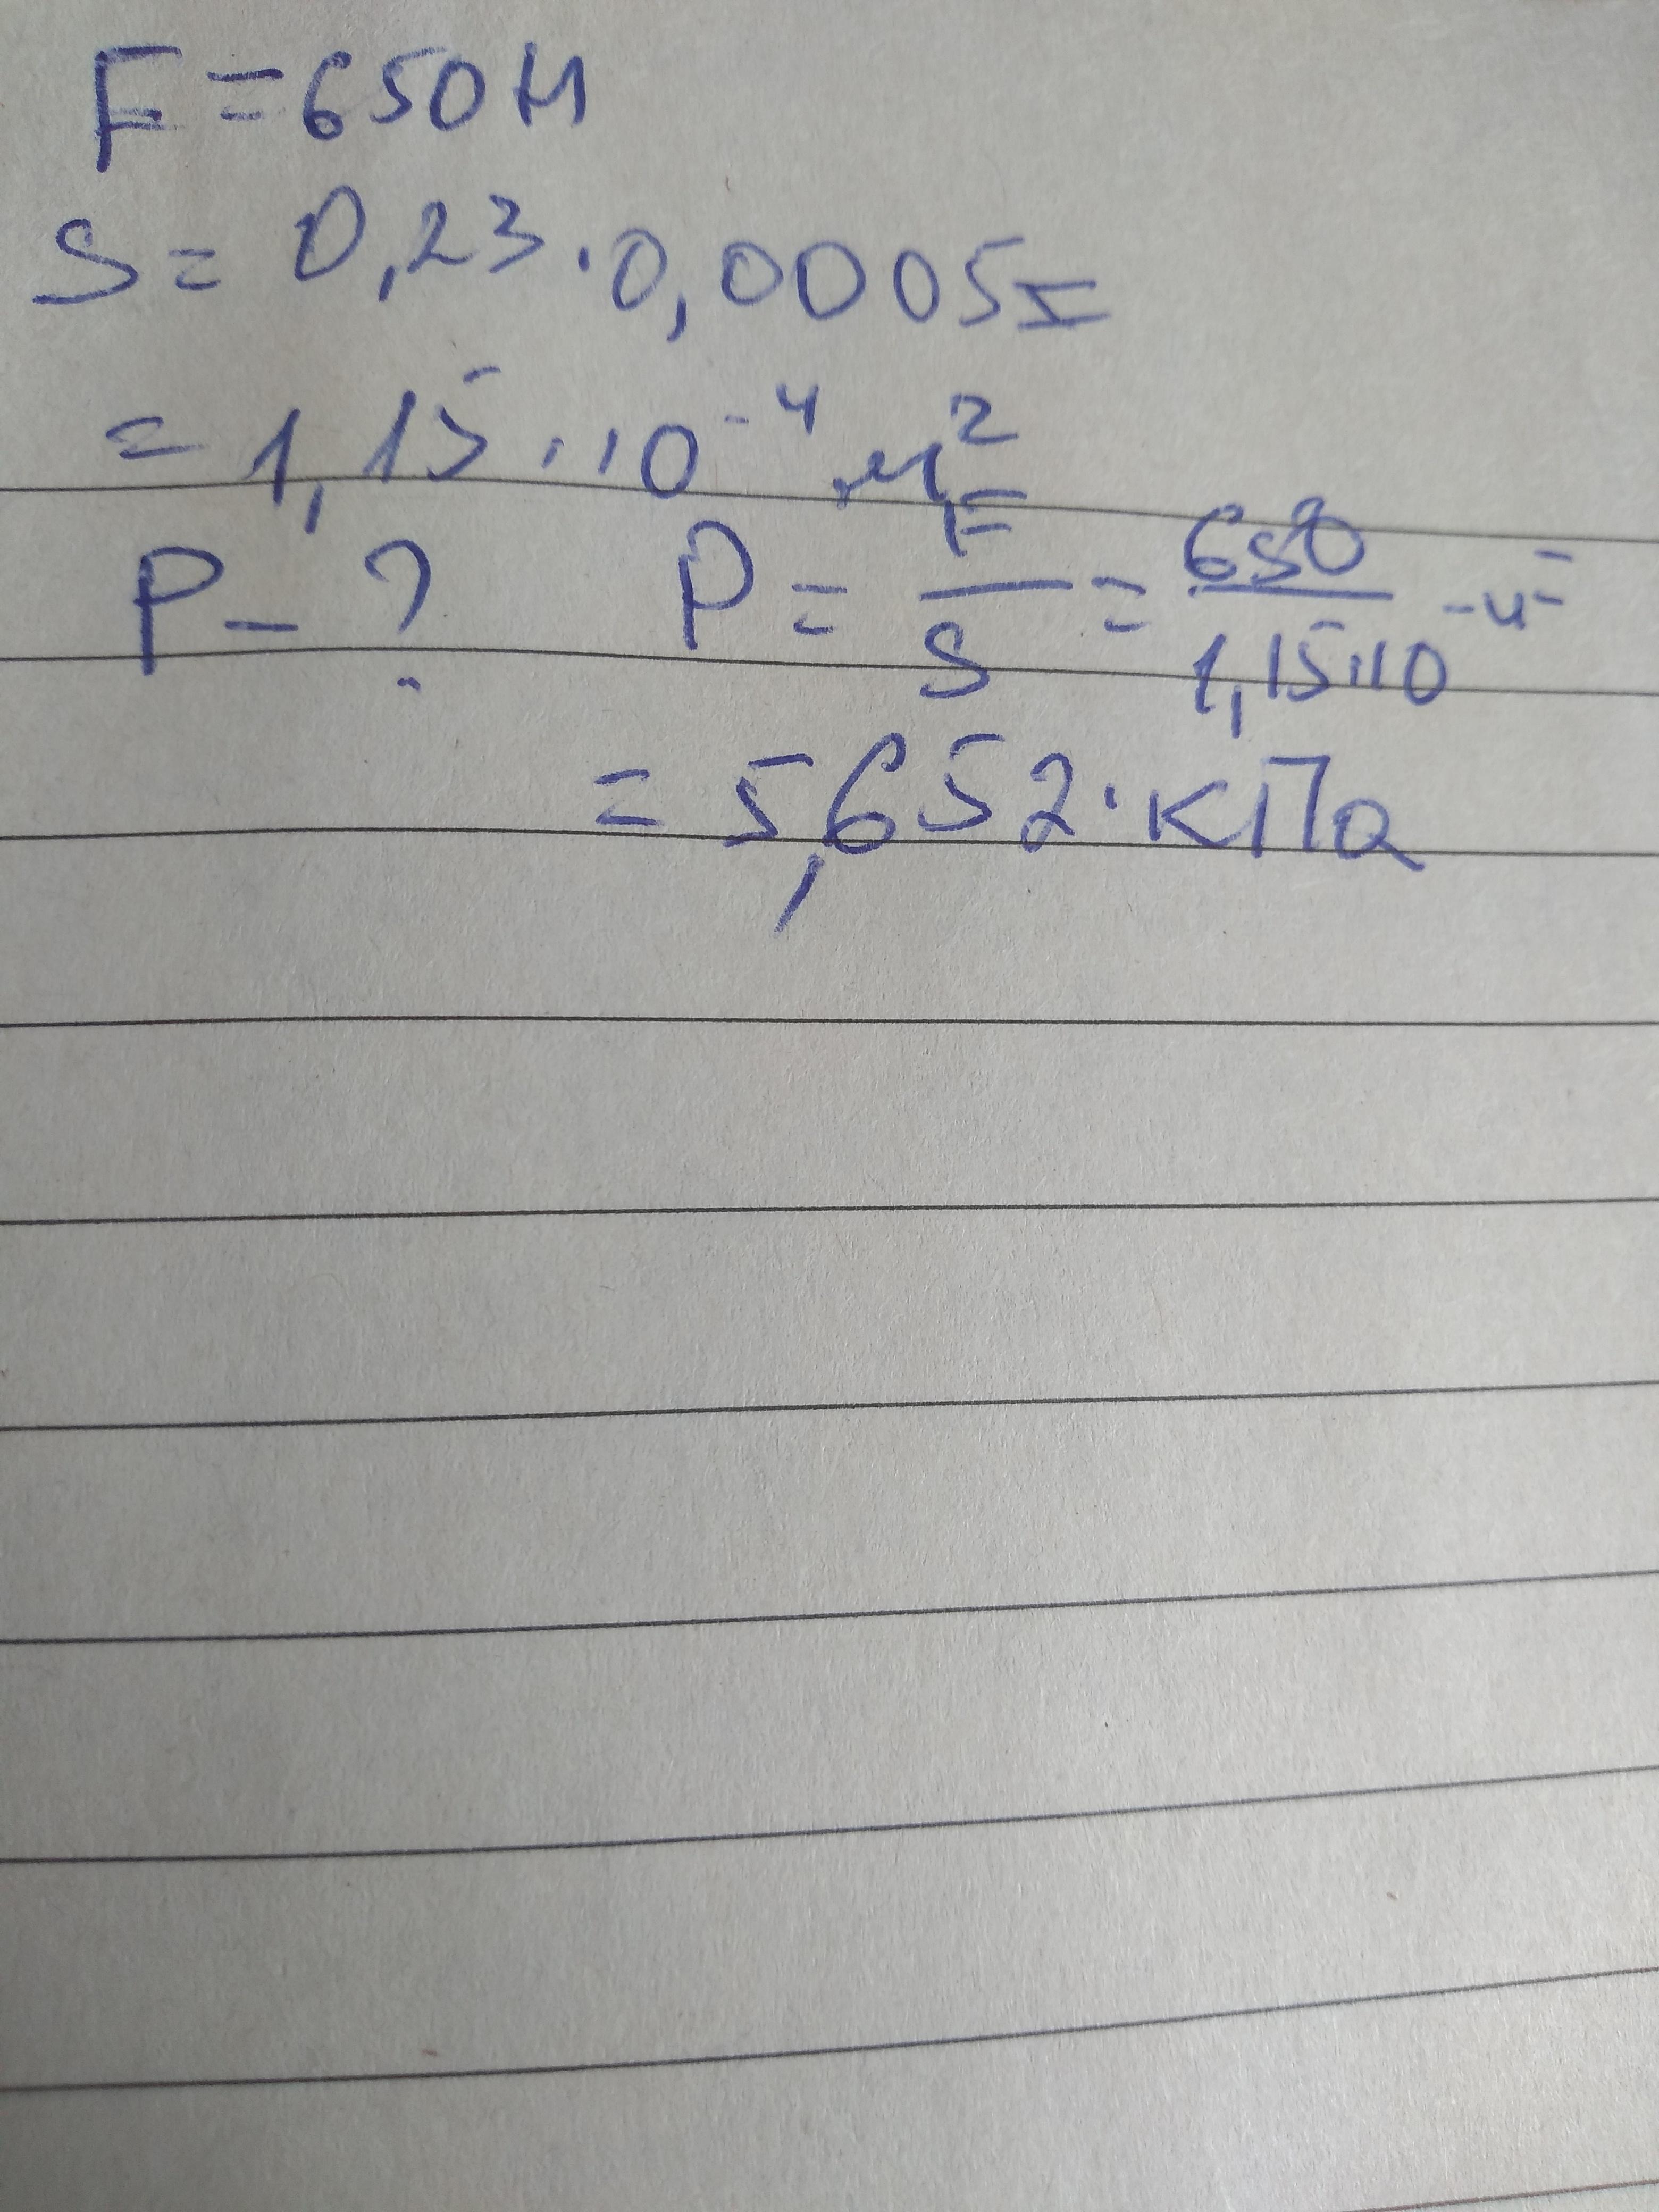 F = 650 Н
S = 0,23 · 0,0005 =
= 1,15 · 10⁻⁴ м²
P - ? P = F/S = 650/1,15·10⁻⁴ =
= 5,652 · кПа